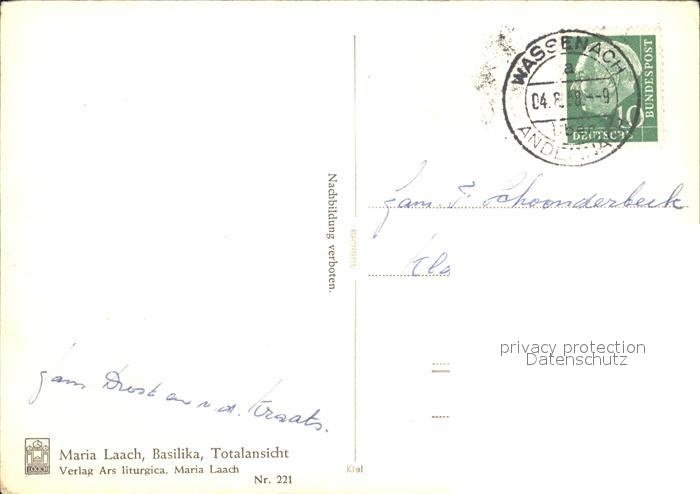 WASSENACH
a
04.8.58.--9
über
ANDERNACH
10
DEUTSCHE
BUNDESPOST
Nachbildung verboten.
Fam. F. Schoonderbeek
Kla
privacy protection
Datenschutz
Fam Drost en v. d. Kraats.
Maria Laach, Basilika, Totalansicht
Verlag Ars liturgica, Maria Laach
Nr. 221